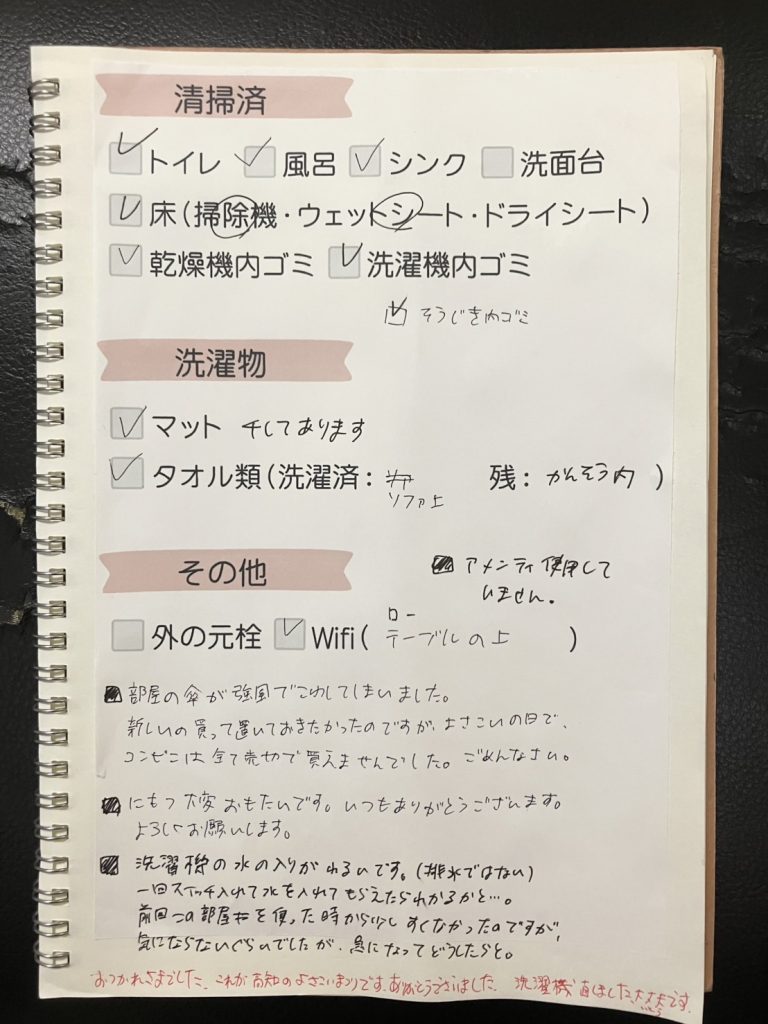 清掃済
トイレ 風呂 シンク 洗面台
床(掃除機・ウェットシート・ドライシート)
乾燥機内ゴミ 洗濯機内ゴミ
そうじき内ゴミ
洗濯物
マット 干してあります
タオル類(洗濯済: 残: かんそう内 )
ソファ上
その他
アメニティ使用して
いません。
外の元栓 Wifi( ローテーブルの上 )
部屋の傘が強風でこわれてしまいました。
新しいの買って置いておきたかったのですが、よさこいの日で、
コンビニは全て売切で買えませんでした。ごめんなさい。
にもつ大変おもたいです。いつもありがとうございます。
よろしくお願いします。
洗濯機の水の入りがわるいです。(排水ではない)
一回スイッチ入れて水を入れてもらえたらわかるかと…。
前回この部屋を使った時から少しすくなかったのですが、
気にならないぐらいでしたが、急になってどうしたらと。
おつかれさまでした。これが高知のよさこいまつりです。ありがとうございました。洗濯機直しました。大丈夫です。